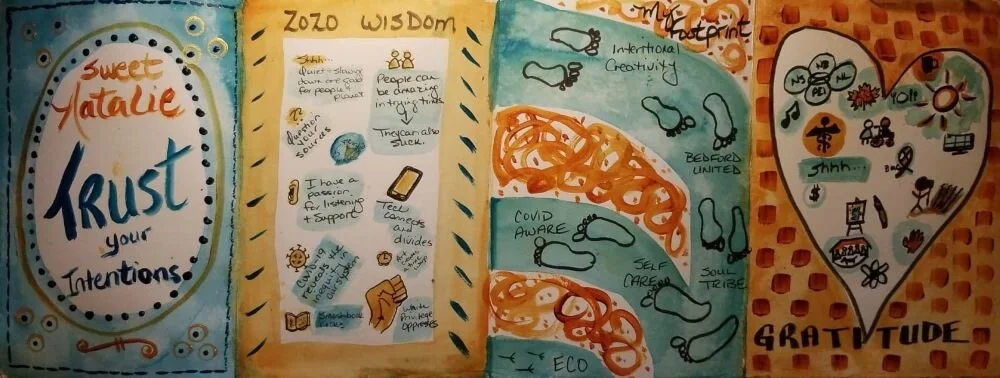 Sweet
Natalie
TRUST
your
Intentions
2020 WISDOM
Shhh...
Quiet + slowing
down are good
for people +
planet
People can
be amazing
in trying times.
They can also
suck.
Question
your
sources
I have a
passion
for listening
+ support
Tech
connects
and
divides
COVID19
reveals the
inequity in
our system
White
Privilege
Oppresses
My
Footprint
Intentional
Creativity
BEDFORD
UNITED
COVID
AWARE
SELF
CARE
SOUL
TRIBE
ECO
NB
NS
NL
PEI
YO!!
Shhh...
$
GRATITUDE